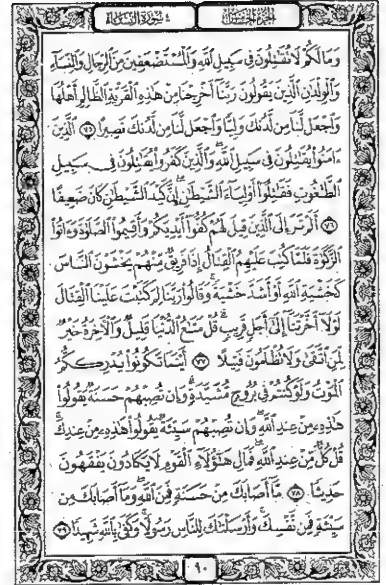 الجزء الخامس
٤ سورة النساء
وَمَا لَكُمْ لَا تُقَٰتِلُونَ فِي سَبِيلِ ٱللَّهِ وَٱلْمُسْتَضْعَفِينَ مِنَ ٱلرِّجَالِ وَٱلنِّسَآءِ
وَٱلْوِلْدَٰنِ ٱلَّذِينَ يَقُولُونَ رَبَّنَآ أَخْرِجْنَا مِنْ هَٰذِهِ ٱلْقَرْيَةِ ٱلظَّالِمِ أَهْلُهَا
وَٱجْعَل لَّنَا مِن لَّدُنكَ وَلِيًّا وَٱجْعَل لَّنَا مِن لَّدُنكَ نَصِيرًا ٧٥ ٱلَّذِينَ
ءَامَنُوا۟ يُقَٰتِلُونَ فِي سَبِيلِ ٱللَّهِ ۖ وَٱلَّذِينَ كَفَرُوا۟ يُقَٰتِلُونَ فِي سَبِيلِ
ٱلطَّٰغُوتِ فَقَٰتِلُوٓا۟ أَوْلِيَآءَ ٱلشَّيْطَٰنِ ۖ إِنَّ كَيْدَ ٱلشَّيْطَٰنِ كَانَ ضَعِيفًا
٧٦ أَلَمْ تَرَ إِلَى ٱلَّذِينَ قِيلَ لَهُمْ كُفُّوٓا۟ أَيْدِيَكُمْ وَأَقِيمُوا۟ ٱلصَّلَوٰةَ وَءَاتُوا۟
ٱلزَّكَوٰةَ فَلَمَّا كُتِبَ عَلَيْهِمُ ٱلْقِتَالُ إِذَا فَرِيقٌ مِّنْهُمْ يَخْشَوْنَ ٱلنَّاسَ
كَخَشْيَةِ ٱللَّهِ أَوْ أَشَدَّ خَشْيَةً ۚ وَقَالُوا۟ رَبَّنَا لِمَ كَتَبْتَ عَلَيْنَا ٱلْقِتَالَ
لَوْلَآ أَخَّرْتَنَآ إِلَىٰٓ أَجَلٍ قَرِيبٍ ۗ قُلْ مَتَٰعُ ٱلدُّنْيَا قَلِيلٌ وَٱلْءَاخِرَةُ خَيْرٌ
لِّمَنِ ٱتَّقَىٰ وَلَا تُظْلَمُونَ فَتِيلًا ٧٧ أَيْنَمَا تَكُونُوا۟ يُدْرِككُّمُ
ٱلْمَوْتُ وَلَوْ كُنتُمْ فِي بُرُوجٍ مُّشَيَّدَةٍ ۗ وَإِن تُصِبْهُمْ حَسَنَةٌ يَقُولُوا۟
هَٰذِهِۦ مِنْ عِندِ ٱللَّهِ ۖ وَإِن تُصِبْهُمْ سَيِّئَةٌ يَقُولُوا۟ هَٰذِهِۦ مِنْ عِندِكَ ۚ
قُلْ كُلٌّ مِّنْ عِندِ ٱللَّهِ ۖ فَمَالِ هَٰٓؤُلَآءِ ٱلْقَوْمِ لَا يَكَادُونَ يَفْقَهُونَ
حَدِيثًا ٧٨ مَّآ أَصَابَكَ مِنْ حَسَنَةٍ فَمِنَ ٱللَّهِ ۖ وَمَآ أَصَابَكَ مِن
سَيِّئَةٍ فَمِن نَّفْسِكَ ۚ وَأَرْسَلْنَٰكَ لِلنَّاسِ رَسُولًا ۚ وَكَفَىٰ بِٱللَّهِ شَهِيدًا ٧٩
٩٠